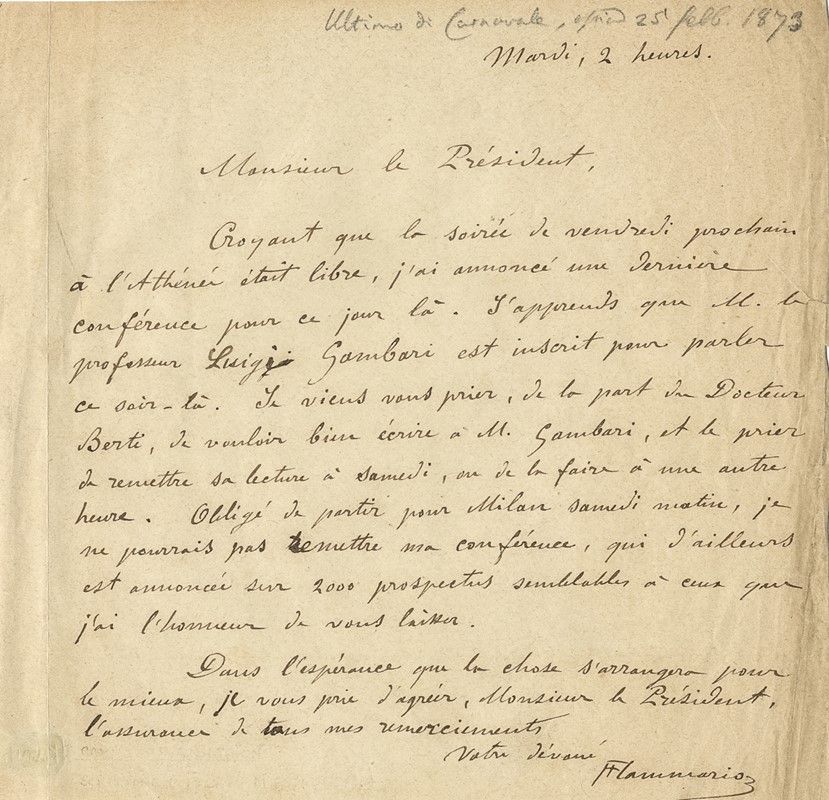 Ultimo di Carnovale, ossia 25 febb. 1873
Mardi, 2 heures.
Monsieur le Président,
Croyant que la soirée de vendredi prochain
à l'Athénée était libre, j'ai annoncé une dernière
conférence pour ce jour là. J'apprends que M. le
professeur Luigi Gambari est inscrit pour parler
ce soir-là. Je viens vous prier, de la part du Docteur
Berti, de vouloir bien écrire à M. Gambari, et le prier
de remettre sa lecture à samedi, ou de la faire à une autre
heure. Obligé de partir pour Milan samedi matin, je
ne pourrais pas remettre ma conférence, qui d'ailleurs
est annoncée sur 2000 prospectus semblables à ceux que
j'ai l'honneur de vous laisser.
Dans l'espérance que la chose s'arrangera pour
le mieux, je vous prie d'agréer, Monsieur le Président,
l'assurance de tous mes remerciements
Votre dévoué
Flammarion